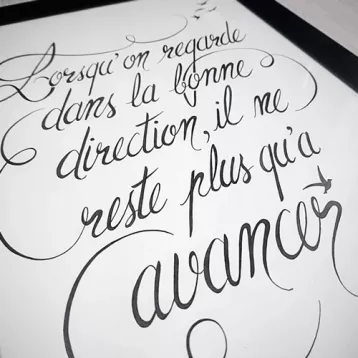 Lorsqu'on regarde
dans la bonne
direction, il ne
reste plus qu'a
avancer